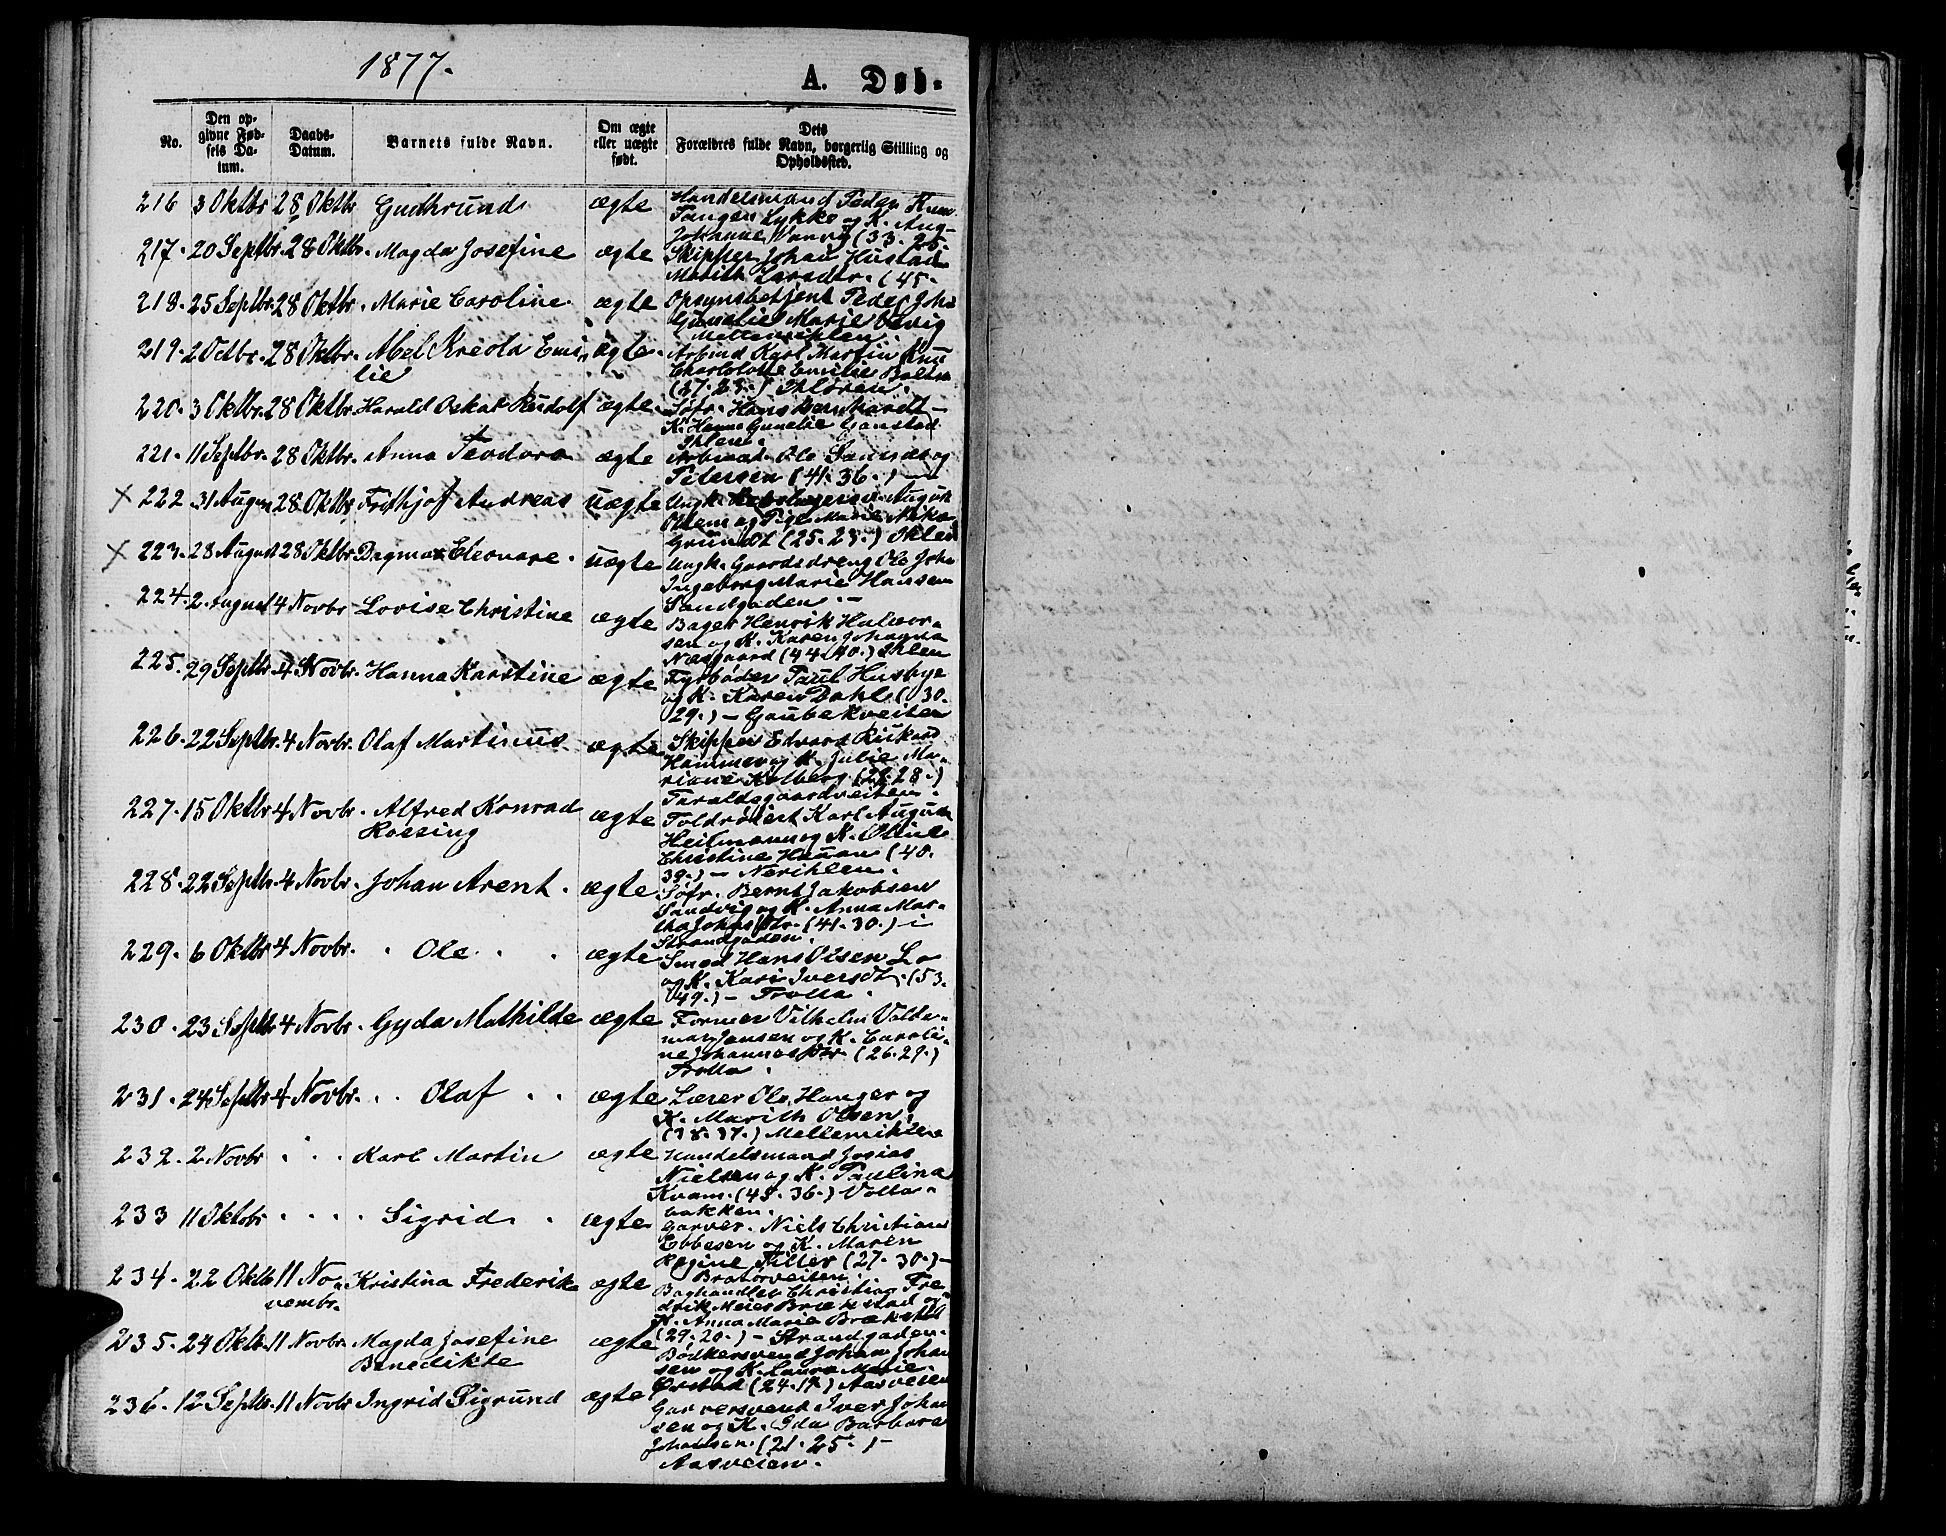 1877.
A. Døb-
No.
Den op-
givne Fød-
sels Da-
tum.
Daabs-
Datum.
Barnets fulde Navn.
Om ægte
eller uægte
født.
Dets
Forældres fulde Navn, borgerlig Stilling og
Opholdssted.
216 3 Oktbr 28 Oktbr Gudhrund ægte Handelsmand Peder
Tangen Lykke og K.
Johanne (33. 25.
217. 20 Septbr. 28 Oktbr. Magda Josefine ægte Skipper Johan Hustad
Marith (45.
218. 25 Septbr. 28 Oktbr. Marie Caroline. ægte Opsynsbetjent Peder
Marie
Mellemihlen.
219. 2 Octbr. 28 Oktbr. Abel Kreola Emi- ægte. Arbmd Karl Martin
lie Charlotte Emilie
Ihleveien.
220. 3 Oktbr. 28 Oktbr. Harald Oskar Rudolf ægte. Søfr. Hans
K. Hanna Gunelie
Ihlen.
221. 11 Septbr. 28 Oktbr. Anna Teodora ægte Ole og
Petersen (41. 36.)
× 222 31 August 28 Oktbr Frithjof Andreas uægte Ungk. August
og Pige Marie
Grundt
× 223. 28 August 28 Oktbr Dagmar Eleonare. uægte Ungk. Gaardsdreng Ole
Ingeborg Marie Hansen
Sandgaden.
224. 2. August 4 Novbr Lovise Christine ægte Bager Henrik Halvor-
sen og K. Karen Johanna
Næsgaard (44. 40.) Ihlen
225. 29 Septbr 4 Novbr. Hanna Karstine ægte Fyrbøder Paul Husbye
og K. Karen Dahl (30.
29.) - Gaubekveiten
226. 22 Septbr. 4 Novbr. Olaf Martinus. ægte Skipper Edvard Rickard
Hammer og K. Julie Ma-
riane Kolberg
Taraldsgaardveiten.
227. 15 Oktbr 4 Novbr. Alfred Konrad ægte Toldrorert Karl August
Rossing Heitmann og K. Oline
Christine (40.
39.) - Nerihlen.
228. 22 Septbr. 4 Novbr. Johan Arent. ægte Søfr. Bernt Jakobsen
Sandvig og K. Anna Mar-
tha (41. 30.) i
Strandgaden.
229. 6 Oktbr 4 Novbr. Ole. ægte Smed Hans Olsen Lo
og K. Kari Iversdt. (53.
49.) - Trolla.
230. 23 Septbr 4 Novbr. Gyda Mathilde ægte Former Vilhelm Valde-
mar Jansen og K. Caroli-
ne Johannesdtr. (26. 29.)
Trolla.
231. 24 Septbr 4 Novbr. Olaf ægte Lærer Ole Hanger og
K. Marith Olsen.
(38. 37.) Mellemihlen
232. 2 Novbr Karl Martin ægte Handelsmand Josias
Nielsen og K. Paulina
Kvam. (45. 36.) Volla-
bakken.
233 11 Oktobr Sigrid. ægte. Garver. Niels Christian
Ebbesen og K. Maren
Regine Filler (27. 30.) -
Bratørveiten.
234. 22 Oktbr 11 No- Kristina Frederike ægte Boghandler Christian Fre-
vembr. drik Meier Brækstad og
K. Anna Marie Brækstad
(29. 20.) - Strandgaden.
235. 24 Oktbr. 11 Novbr. Magda Josefine ægte Bødkersvend Johan Johan-
Benedikte sen og K. Laura Marie
Ørstad (24. 19.) Aasveien
236. 12 Septbr. 11 Novbr Ingrid Sigrund ægte Garversvend Iver Johan-
sen og K. Ida Barbara
Johansen. (21. 25.) -
Aasveien.